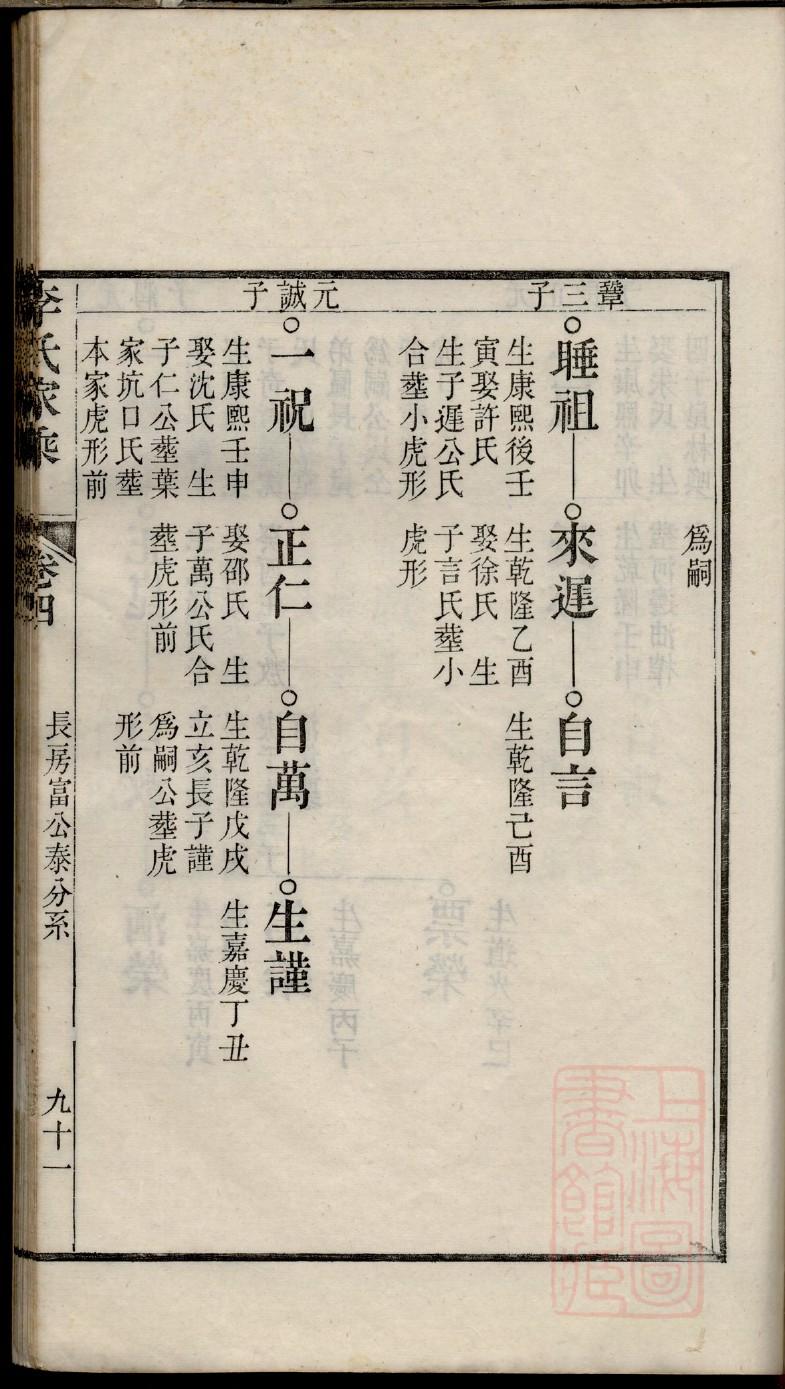 為嗣
鼙三子
睡祖
生康熙後壬
寅娶許氏
生子遲公氏
合塟小虎形
來遲
生乾隆乙酉
娶徐氏　生
子言氏塟小
虎形
自言
生乾隆己酉
元誠子
一祝
生康熙壬申
娶沈氏　生
子仁公塟葉
家坑口氏塟
本家虎形前
正仁
娶邵氏　生
子萬公氏合
塟虎形前
自萬
生乾隆戊戌
立亥長子謹
為嗣公塟虎
形前
生謹
生嘉慶丁丑
李氏家乘
卷四
長房富公泰分系
九十一
上海圖
書館藏